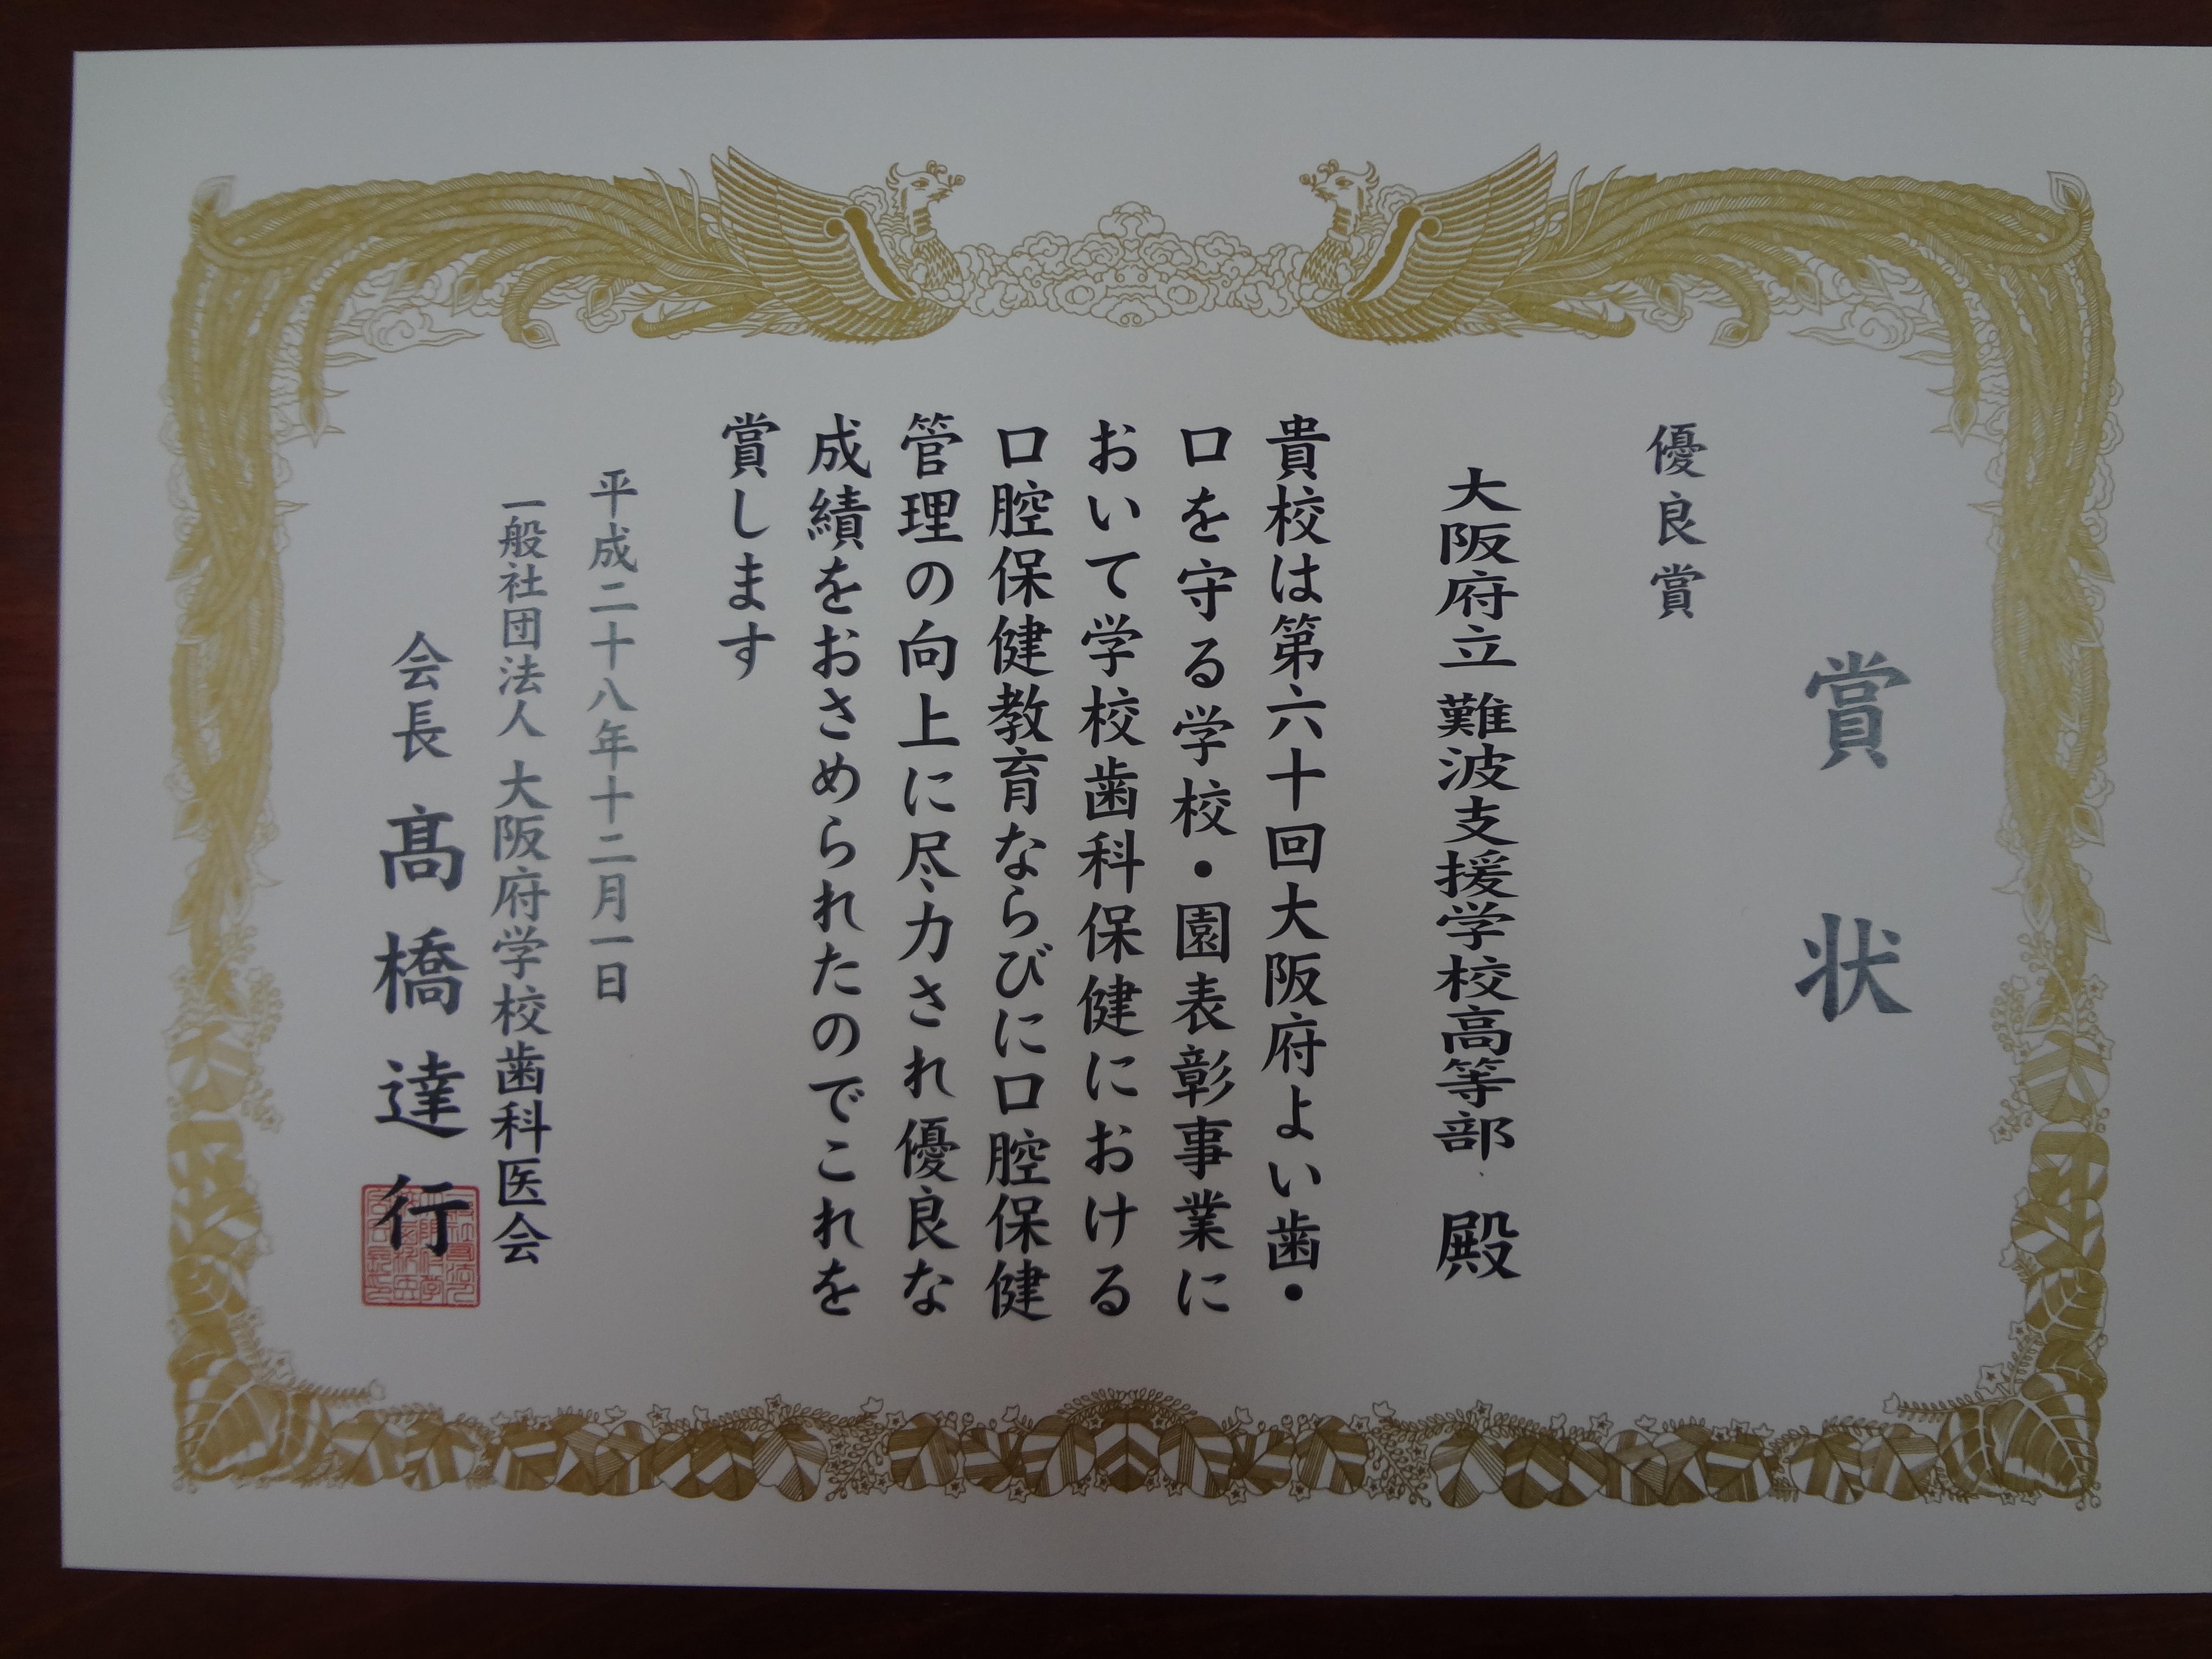 賞状
優良賞
大阪府立 難波支援学校高等部 殿
貴校は第六十回大阪府よい歯・
口を守る学校・園表彰事業に
おいて学校歯科保健における
口腔保健教育ならびに口腔保健
管理の向上に尽力され優良な
成績をおさめられたのでこれを
賞します
平成二十八年十二月一日
一般社団法人 大阪府学校歯科医会
会長 髙橋達行